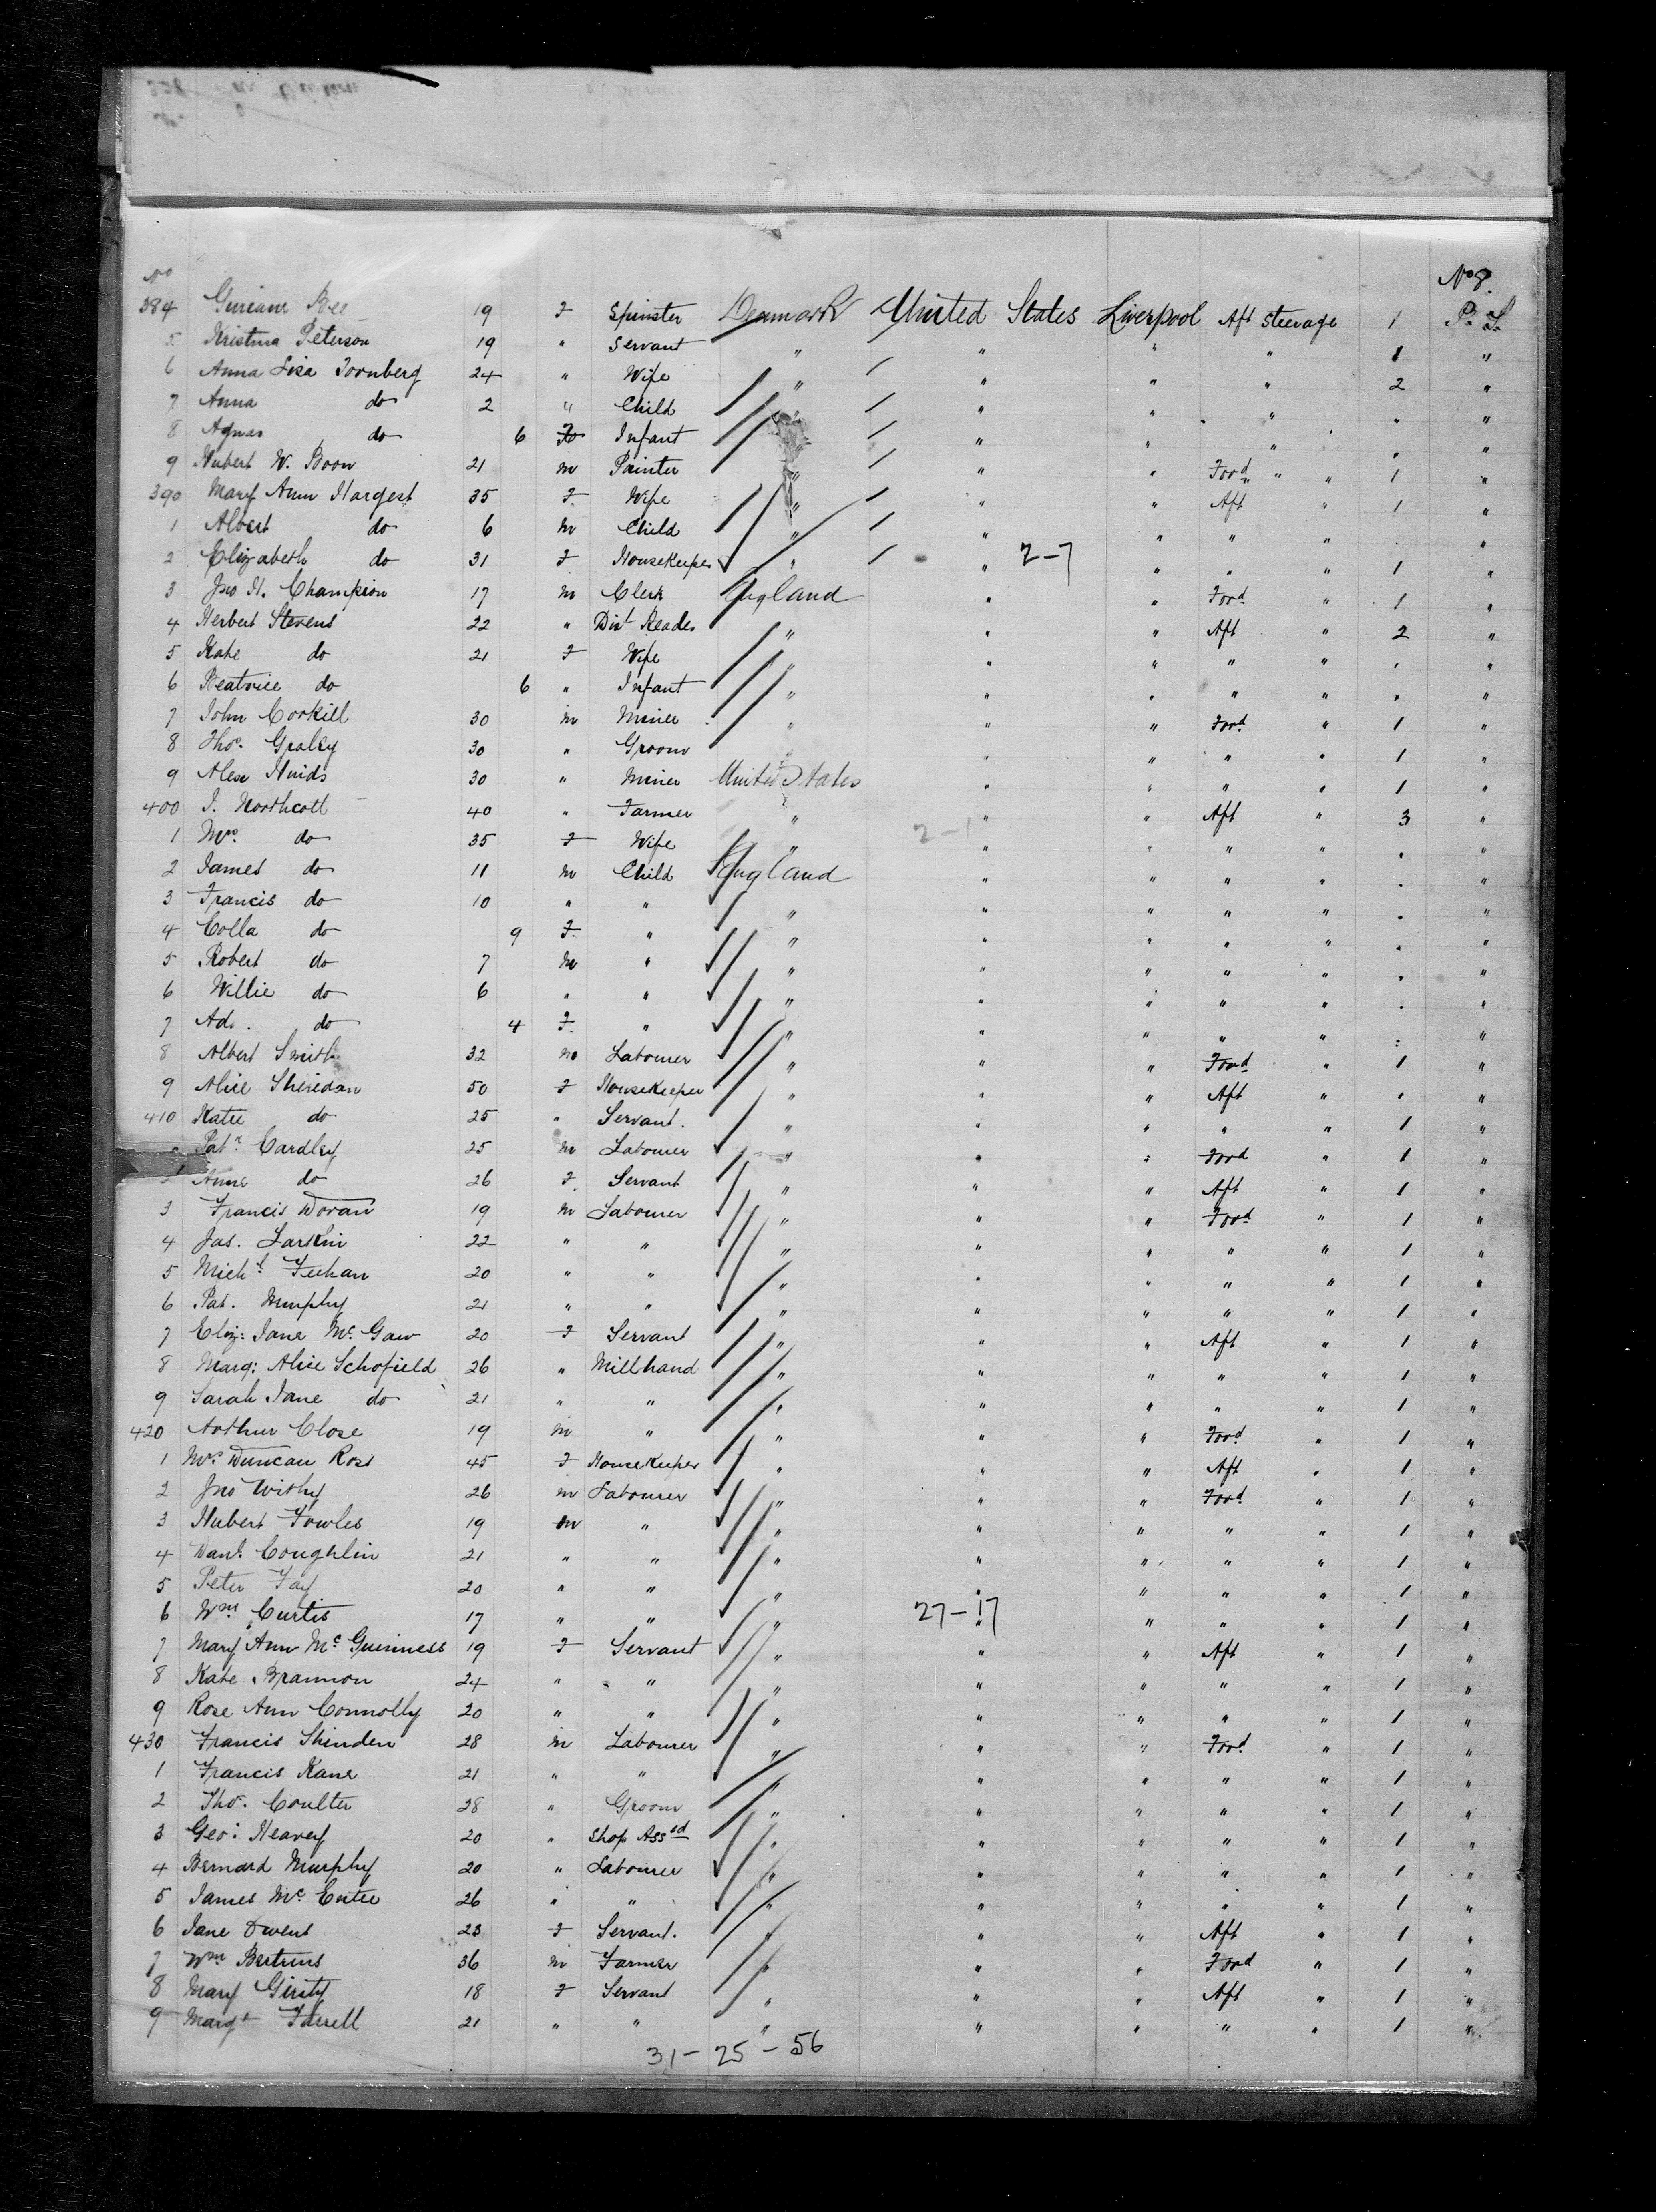 No 8.
No
384 Guriane Bee 19 F Spinster Denmark United States Liverpool Aft Steerage 1 P. S.
5 Kristina Peterson 19 " Servant " " " " 1 "
6 Anna Lisa Tornberg 24 " Wife " " " " 2 "
7 Anna do 2 " Child " " " " " "
8 Agnes do 6 F Infant " " " " " "
9 Hubert W. Boon 21 m Painter " " " Ford " " 1 "
390 Mary Ann Hargest 35 F Wife " " " Aft " 1 "
1 Albert do 6 m Child " " " " " . "
2 Elizabeth do 31 F Housekeeper " " 2-7 " " " 1 "
3 Jno H. Champion 17 m Clerk England " " Ford " 1 "
4 Herbert Stevens 22 " Dist Reader " " " Aft " 2 "
5 Kate do 21 F Wife " " " " " " "
6 Beatrice do 6 " Infant " " " " " " "
7 John Corkill 30 m Miner " " " Ford " 1 "
8 Thos. Graley 30 " Groom " " " " 1 "
9 Alex Huids 30 " Miner United States " " " " 1 "
400 J. Northcott 40 " Farmer " " " Aft " 3 "
1 Mrs. do 35 F Wife " 2-1 " " " " . "
2 James do 11 m Child England " " " " . "
3 Francis do 10 " " " " " " " . "
4 Colla do 9 F " " " " " " . "
5 Robert do 7 m " " " " " " . "
6 Willie do 6 " " " " " " " . "
7 Ad. do 4 F " " " " " " . "
8 Albert Smith 32 m Labourer " " " Ford " 1 "
9 Alice Sheridan 50 F Housekeeper " " " Aft " " "
410 Katie do 25 " Servant. " " " " " 1 "
Patk Eardley 25 m Labourer " " " Ford " 1 "
2 Anne do 26 F Servant " " " Aft " 1 "
3 Francis Doran 19 m Labourer " " " Ford " 1 "
4 Jas. Larkin 22 " " " " " " " 1 "
5 Michl Feehan 20 " " " " " " " 1 "
6 Pat. Murphy 21 " " " " " " " 1 "
7 Eliz: Jane McGaw 20 F Servant " " " Aft " 1 "
8 Marg: Alice Schofield 26 " Millhand " " " " " 1 "
9 Sarah Jane do 21 " " " " " " " 1 "
420 Arthur Close 19 m " " " " Ford " 1 "
1 Mrs. Duncan Ross 45 F Housekeeper " " " Aft " 1 "
2 Jno Withy 26 m Labourer " " " Ford " 1 "
3 Hubert Fowles 19 m " " " " " " 1 "
4 Danl. Coughlin 21 " " " " " " " 1 "
5 Peter Fay 20 " " " " " " " 1 "
6 Wm. Curtis 17 " " " 27-17 " " " " 1 "
7 Mary Ann McGuinness 19 F Servant " " " Aft " 1 "
8 Kate Brannon 24 " " " " " " " 1 "
9 Rose Ann Connolly 20 " " " " " " " 1 "
430 Francis Shinden 28 m Labourer " " " Ford " 1 "
1 Francis Kane 21 " " " " " " " 1 "
2 Thos. Coulter 28 " Groom " " " " " 1 "
3 Geo: Heavey 20 " Shop Assd " " " " " 1 "
4 Bernard Murphy 20 " Labourer " " " " " 1 "
5 James McEntee 26 " " " " " " " 1 "
6 Jane Owens 23 F Servant. " " " Aft " 1 "
7 Wm. Bertrens 36 m Farmer " " " Ford " 1 "
8 Mary Girsty 18 F Servant " " " Aft " 1 "
9 Margt Farrell 21 " " " " " " " 1 "
31-25-56